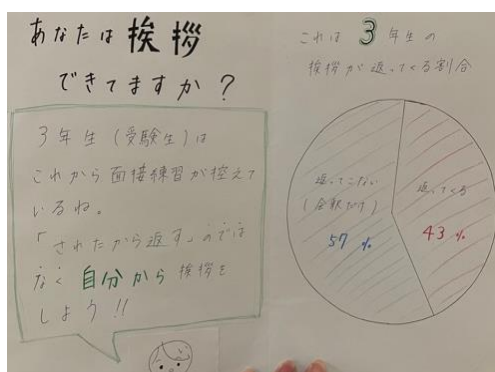 あなたは挨拶
できてますか？
3年生(受験生)は
これから面接練習が控えて
いるね。
「されたから返す」のでは
なく自分から挨拶を
しよう!!
これは3年生の
挨拶が返ってくる割合
返ってこない
(会釈だけ)
57%
返ってくる
43%